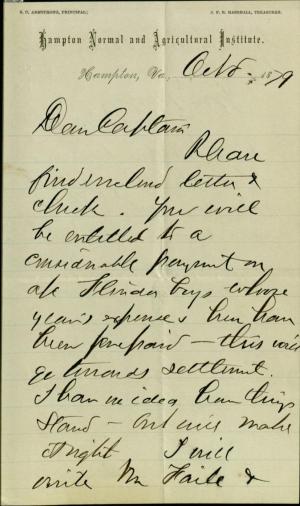 S. C. ARMSTRONG, PRINCIPAL. J. F. B. MARSHALL, TREASURER.
Hampton Normal and Agricultural Institute.
Hampton, Va., Oct 1879
Dear Captain
Please
find enclosed letter &
check. You will
be entitled to a
considerable payment on
all Florida boys whose
year's expenses have been
prepaid - this will
go towards settlement.
I have no idea how things
stand - but will make
it right I will
write Mr &